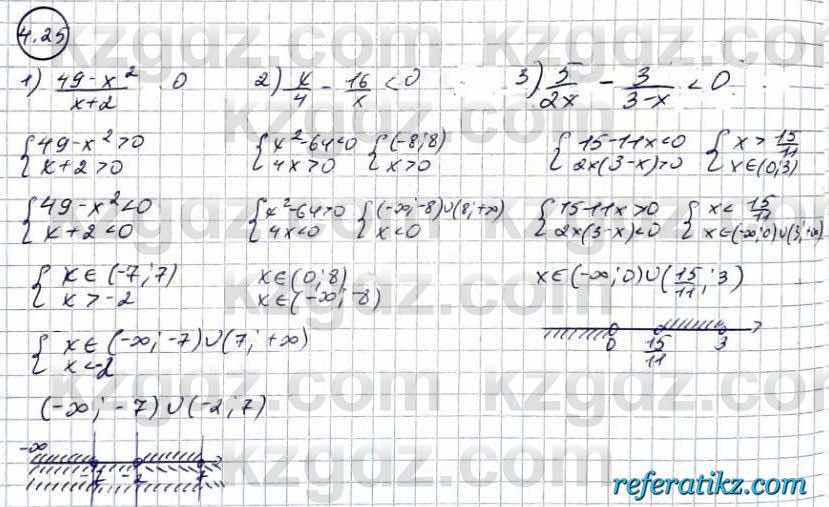 4.25
1) (49-x²)/(x+2) 0
{49-x²>0
x+2>0
{49-x²<0
x+2<0
{x∈(-7;7)
x>-2
{x∈(-∞;-7)∪(7;+∞)
x<-2
(-∞;-7)∪(-2;7)
-∞ -7 -2 7
2) x/4 - 16/x <0
{x²-64<0 {(-8;8)
4x>0 x>0
{x²-64>0 {(-∞;-8)∪(8;+∞)
4x<0 x<0
x∈(0;8)
x∈(-∞;-8)
3) 5/2x - 3/(3-x) <0
{15-11x<0 {x>15/11
2x(3-x)>0 x∈(0;3)
{15-11x>0 {x<15/11
2x(3-x)<0 x∈(-∞;0)∪(3;+∞)
x∈(-∞;0)∪(15/11;3)
0 15/11 3
kzgdz.com
referatikz.com